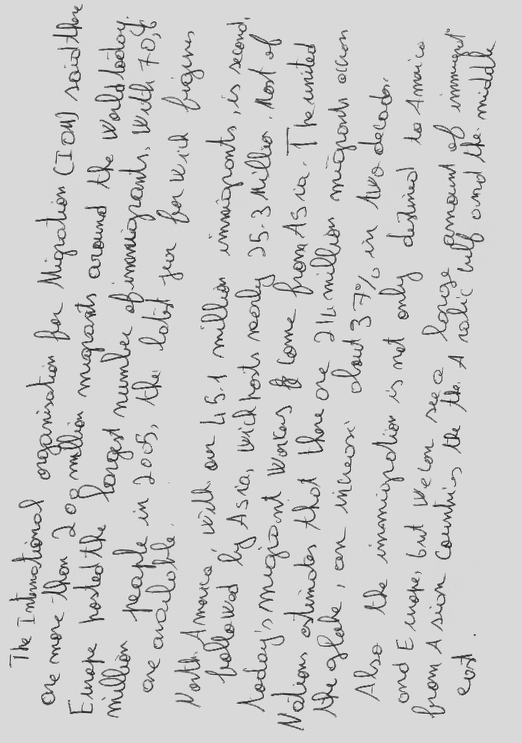 The International organisation for Migration (IOM) said there
are more than 200 million migrants around the world today.
Europe hosted the largest number of immigrants, with 70,6
million people in 2005, the latest year for wich figures
are available.
North America, with over 45.1 million immigrants, is second,
followed by Asia, wich hosts nearly 25.3 Million. Most of
today's migrant workers come from Asia. The united
Nations estimates that there are 214 million migrants across
the globe, an increase about 37% in two decades.
Also the immigration is not only destined to America
and Europe, but we can see a large amount of immigrant
from Asian countries the the Arabic gulf and the middle
east.